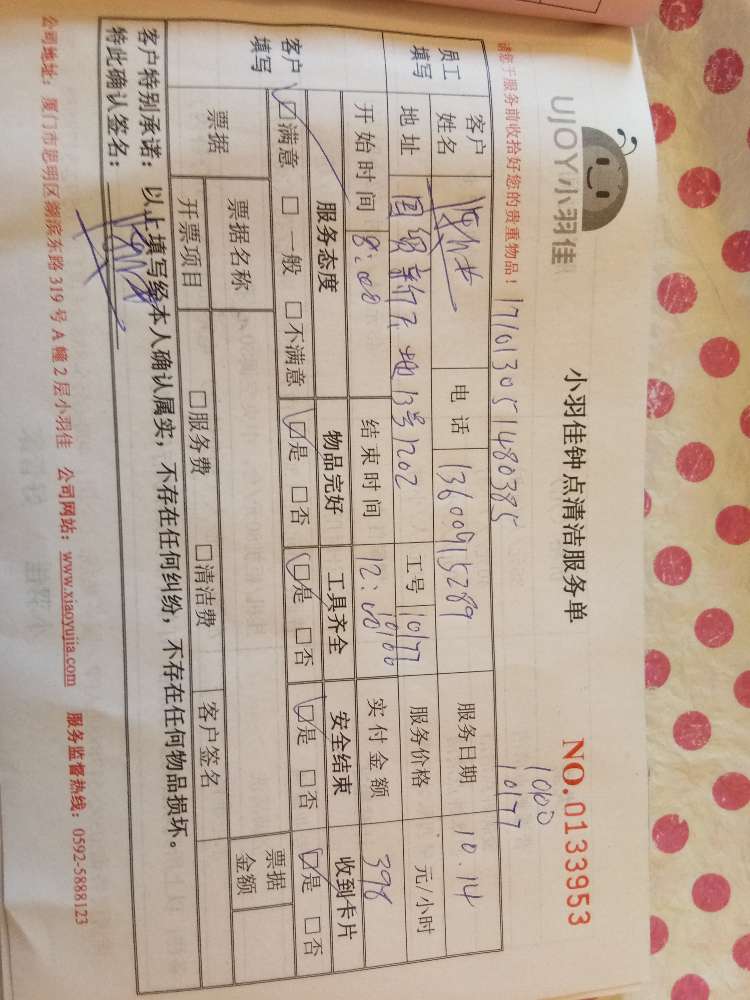 UJOY小羽佳
小羽佳钟点清洁服务单
NO.0133953
请您于服务前收拾好您的贵重物品！
171013051480385
10100
10177
员工填写
客户姓名
电话 13600915289
服务日期 10.14
地址 国贸新天地13号1202
工号 10177
10100
服务价格 元/小时
开始时间 8:00
结束时间 12:00
实付金额 398
客户填写
服务态度 物品完好 工具齐全 安全结束 收到卡片
☑满意 □一般 □不满意 ☑是 □否 ☑是 □否 ☑是 □否 ☑是 □否
票据
票据名称
票据金额
开票项目 □服务费 □清洁费 客户签名
客户特别承诺：以上填写经本人确认属实，不存在任何纠纷，不存在任何物品损坏。
特此确认签名：
公司地址：厦门市思明区湖滨东路319号A幢2层小羽佳 公司网站：www.xiaoyujia.com 服务监督热线：0592-5888123